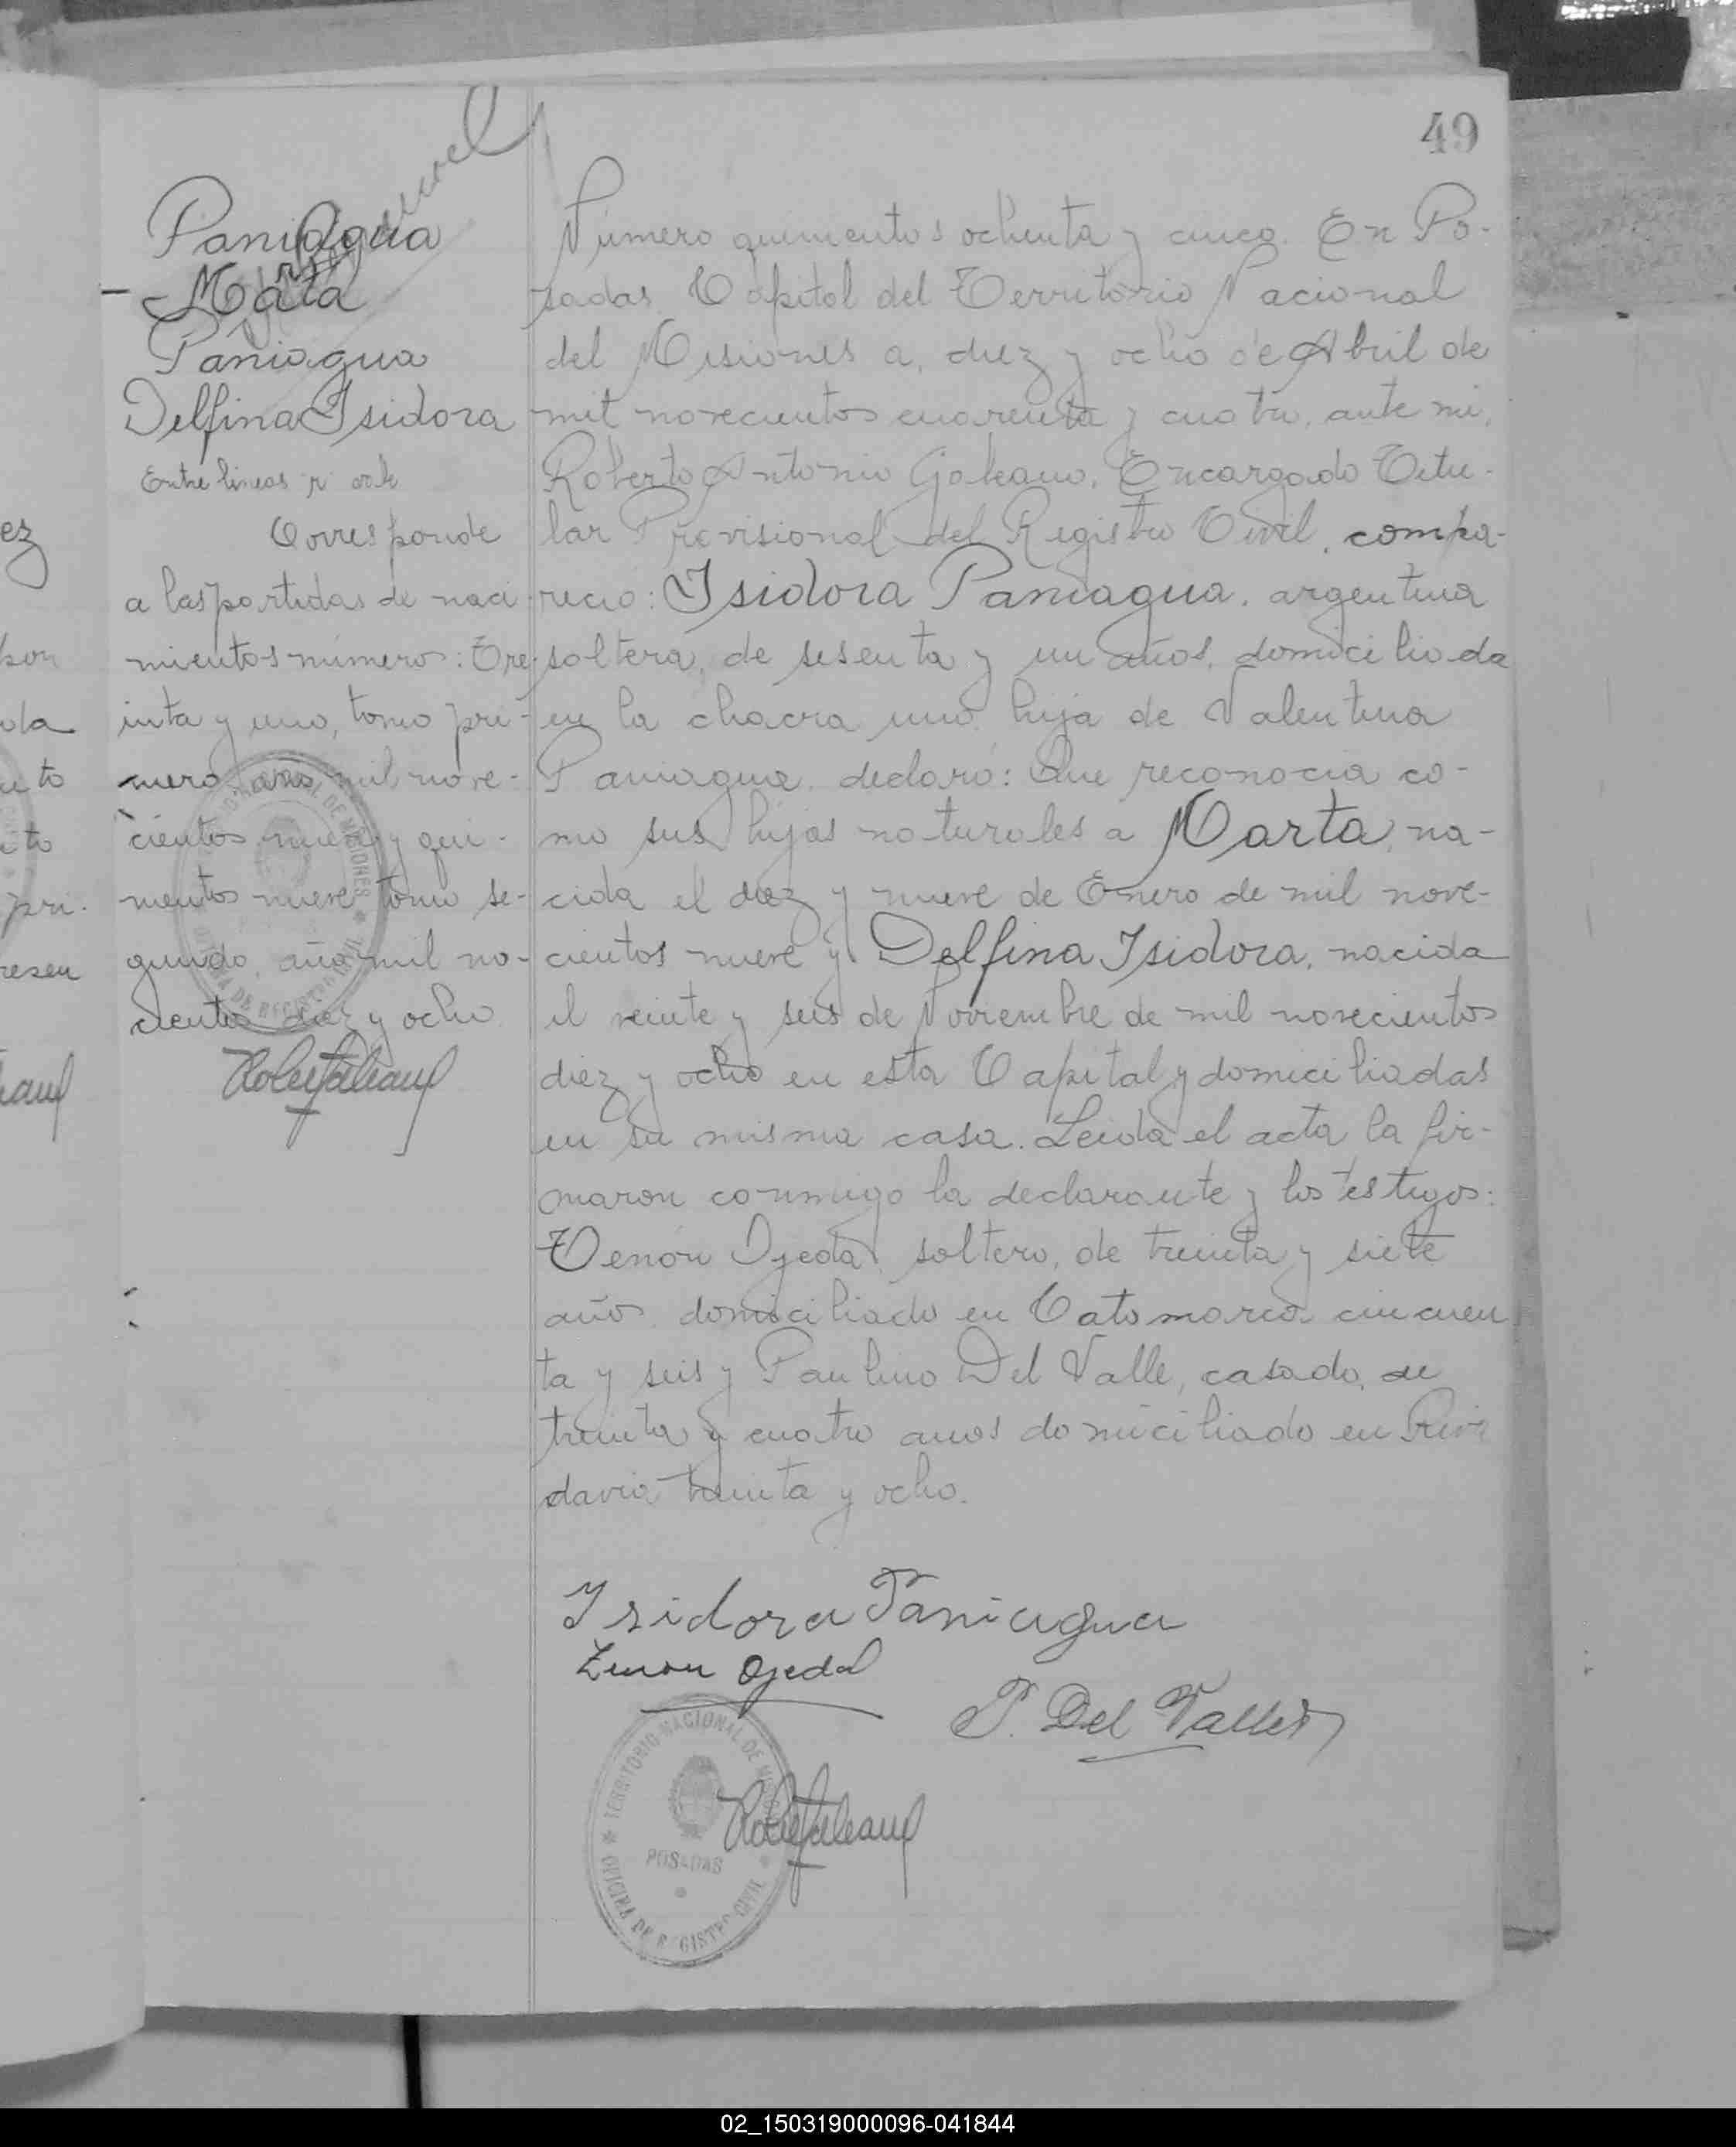 49
Paniagua
Marta
Paniagua
Delfina Isidora
Entre lineas "r" vale
Corresponde
a las partidas de naci
mientos número: Tre-
inta y uno, tomo pri-
mero, año mil nove-
cientos nueve y qui-
nientos nueve tomo se-
gundo, año mil no-
vecientos diez y ocho
Número quinientos ochenta y cinco. En Po-
sadas, Capital del Territorio Nacional
del Misiones a, diez y ocho de Abril de
mil novecientos cuarenta y cuatro, ante mi,
Roberto Antonio Galeano, Encargado Titu-
lar Provisional del Registro Civil, compa-
reció: Isidora Paniagua, argentina
soltera, de sesenta y un años, domiciliada
en la chacra uno, hija de Valentina
Paniagua, declaró: Que reconocía co-
mo sus hijas naturales a Marta, na-
cida el diez y nueve de Enero de mil nove-
cientos nueve y Delfina Isidora, nacida
el veinte y seis de Noviembre de mil novecientos
diez y ocho en esta Capital y domiciliadas
en su misma casa. Leida el acta la fir-
maron conmigo la declarante y los testigos:
Zenón Ojeda, soltero, de treinta y siete
años domiciliado en Catamarca cincuen
ta y seis y Paulino Del Valle, casado, de
treinta y cuatro anos domiciliado en Riva
davia treinta y ocho.
Isidora Paniagua
Zenon Ojeda
P. Del Valle
TERRITORIO NACIONAL DE MISIONES
POSADAS
OFICINA DE REGISTRO CIVIL
02_150319000096-041844